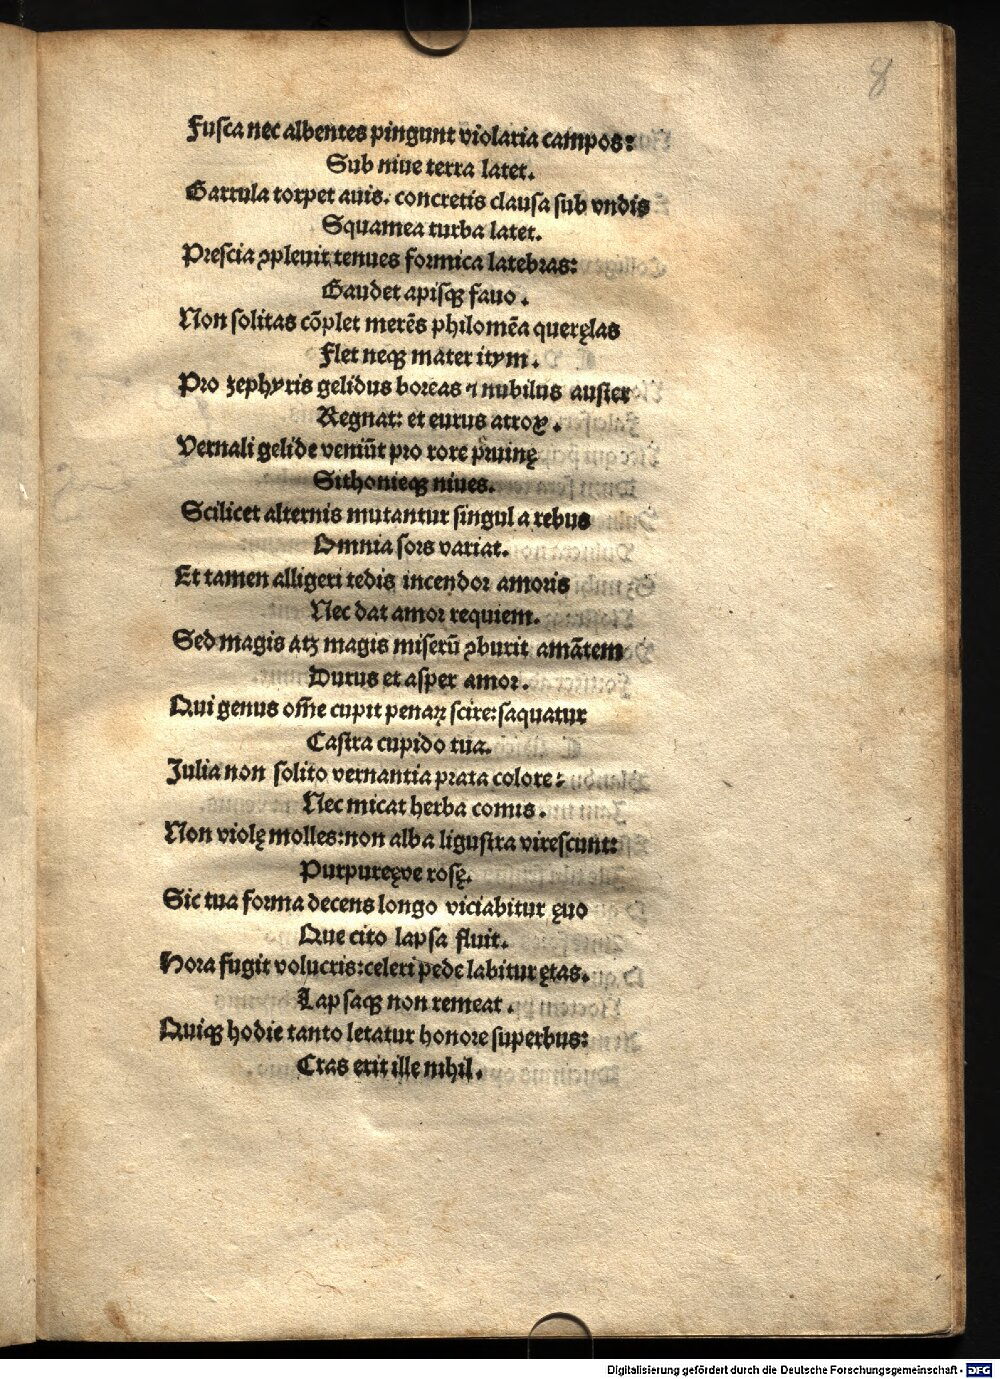 8
Fusca nec albentes pingunt violaria campos:
Sub niue terra latet.
Garrula torpet auis. concretis clausa sub vndis
Squamea turba latet.
Prescia ꝯpleuit tenues formica latebras:
Gaudet apisqꝫ fauo.
Non solitas cōplet merēs philomēa queręlas
Flet neqꝫ mater itym.
Pro zephyris gelidus boreas ⁊ nubilus auster
Regnat: et eurus atrox.
Vernali gelide veniūt pro rore pͥruinę
Sithonieqꝫ niues.
Scilicet alternis mutantur singul a rebus
Omnia sors variat.
Et tamen alligeri tedis incendor amoris
Nec dat amor requiem.
Sed magis atqꝫ magis miserū ꝯburit amātem
Durus et asper amor.
Qui genus om̄e cupit penaꝝ scire: saquatur
Castra cupido tua.
Julia non solito vernantia prata colore:
Nec micat herba comis.
Non violę molles: non alba ligustra virescunt:
Purpuręve rosę.
Sic tua forma decens longo viciabitur ęuo
Que cito lapsa fluit.
Hora fugit volucris: celeri pede labitur ętas.
Lapsaqꝫ non remeat.
Quiqꝫ hodie tanto letatur honore superbus:
Cras erit ille nihil.
Digitalisierung gefördert durch die Deutsche Forschungsgemeinschaft - DFG